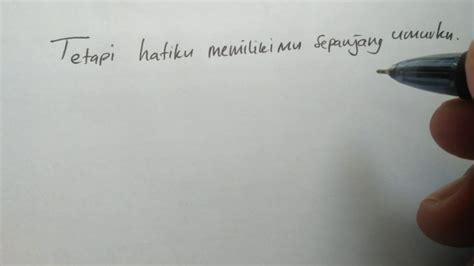 Tetapi hatiku memilikimu sepanjang umurku.